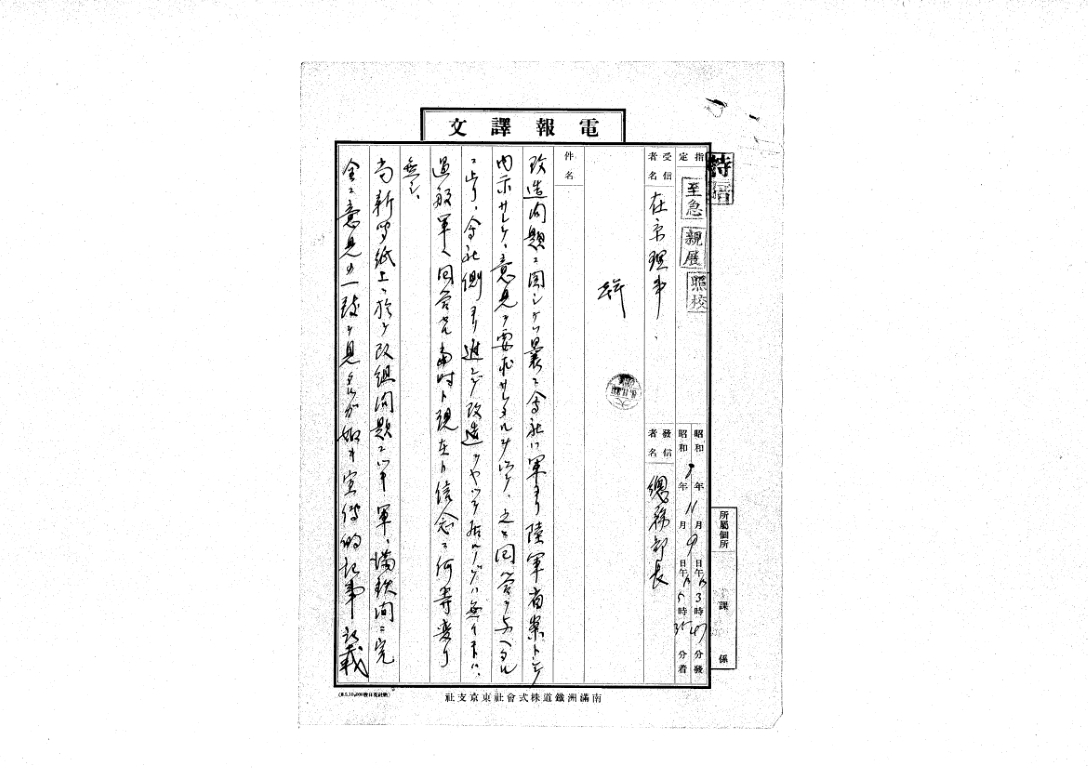 電報譯文
特
指定
至急
親展
照校
昭和 年11月9日午后3時47分發
昭和 年 月 日午后5時35分着
受信者名
在京理事
發信者名
總務部長
件名
改造問題ニ関シテハ曩ニ会社ハ軍ヨリ陸軍省案トシテ
内示サレテ、意見ヲ要求サレタルヲ以テ、之ニ回答ヲ与ヘタル
ニ止リ、会社側ヨリ進ンデ改造ヲヤッテ居ルノデハ無イ
過般軍ヘ回答セル当時ト現在ト信念ニ何等変リ
無シ、
尚新聞紙上ニ於テ改組問題ニツキ軍、満鉄間ニ完
全ニ意見ノ一致ヲ見タルガ如キ宣伝的記事記載
所屬個所
課
係
南滿洲鐵道株式會社東京支社